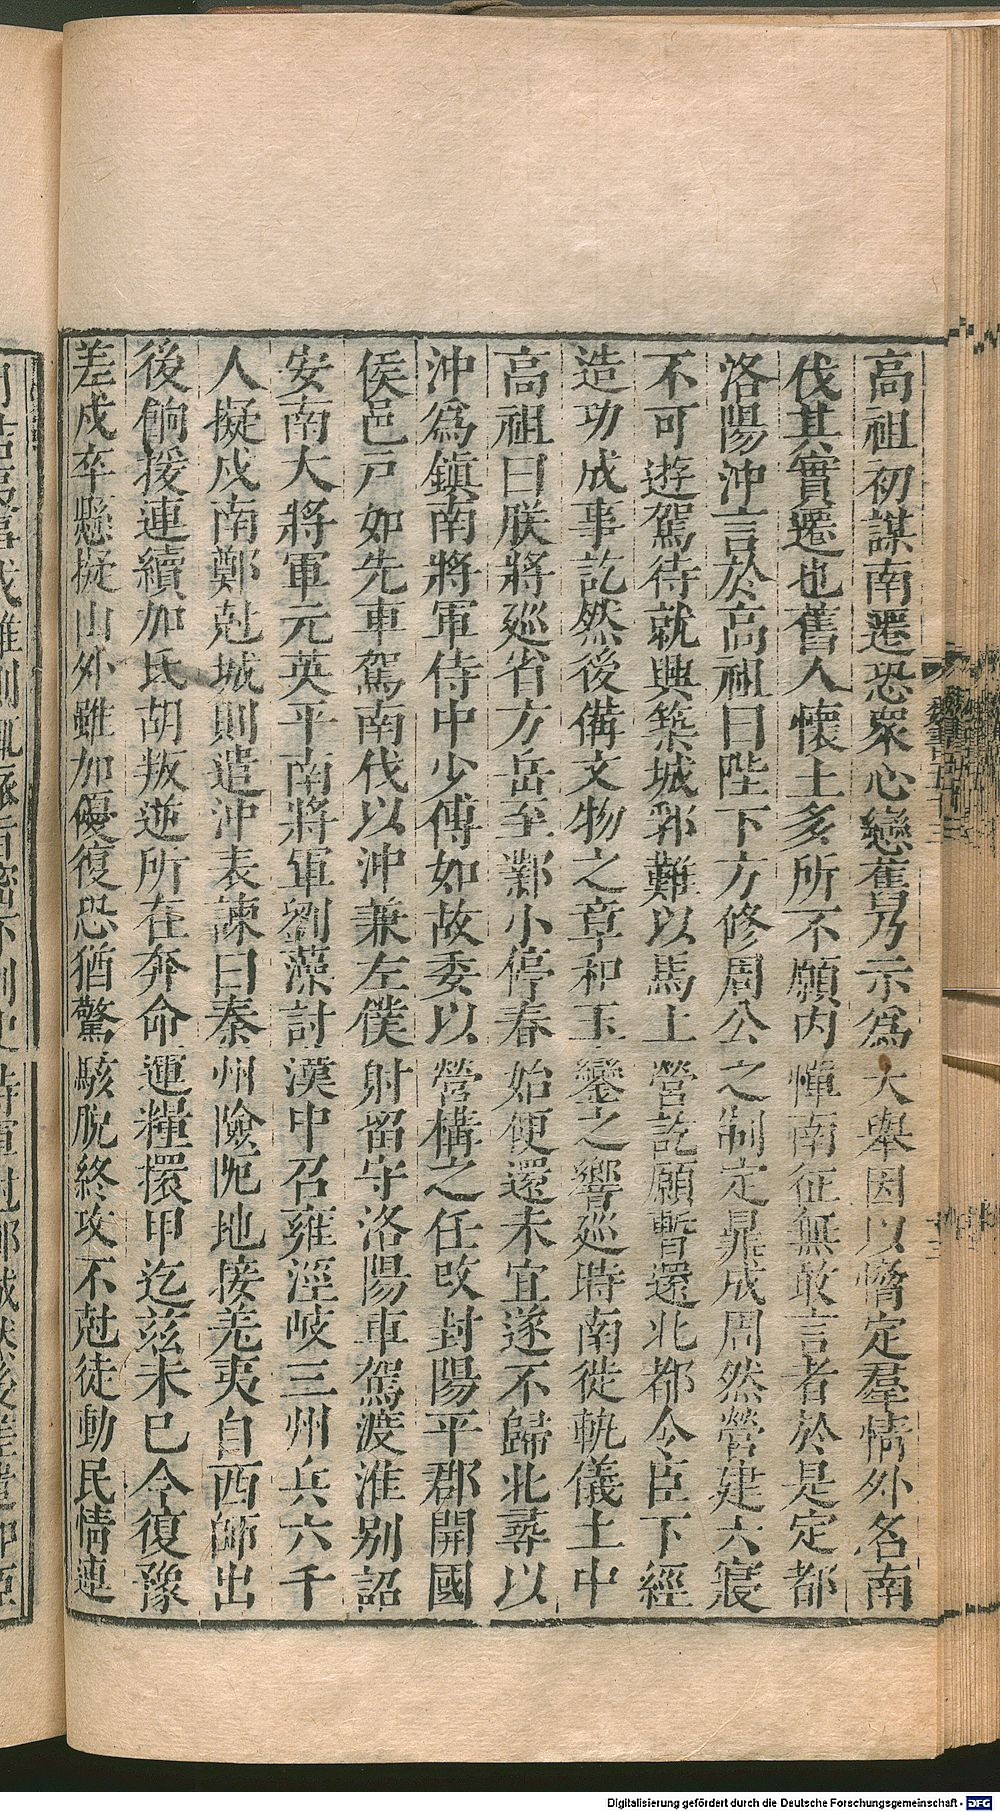 高祖初謀南遷恐衆心戀舊乃示爲大舉因以脅定羣情外名南
伐其實遷也舊人懷土多所不願內憚南征無敢言者於是定都
洛陽沖言於高祖曰陛下方修周公之制定鼎成周然營建六寢
不可遊駕待就興築城郛難以馬上營訖願暫還北都令臣下經
造功成事訖然後備文物之章和玉鑾之響巡時南徙軌儀土中
高祖曰朕將巡省方岳至鄴小停春始便還未宜遂不歸北尋以
沖爲鎮南將軍侍中少傅如故委以營構之任改封陽平郡開國
侯邑戸如先車駕南伐以沖兼左僕射留守洛陽車駕渡淮別詔
安南大將軍元英平南將軍劉藻討漢中召雍涇岐三州兵六千
人擬戍南鄭尅城則遣沖表諫曰秦州險阨地接羌夷自西師出
後餉援連續加氐胡叛逆所在奔命運糧擐甲迄茲未已今復豫
差戍卒懸擬山外雖加優復恐猶驚駭脫終攻不尅徒動民情連
Digitalisierung gefördert durch die Deutsche Forschungsgemeinschaft - DFG